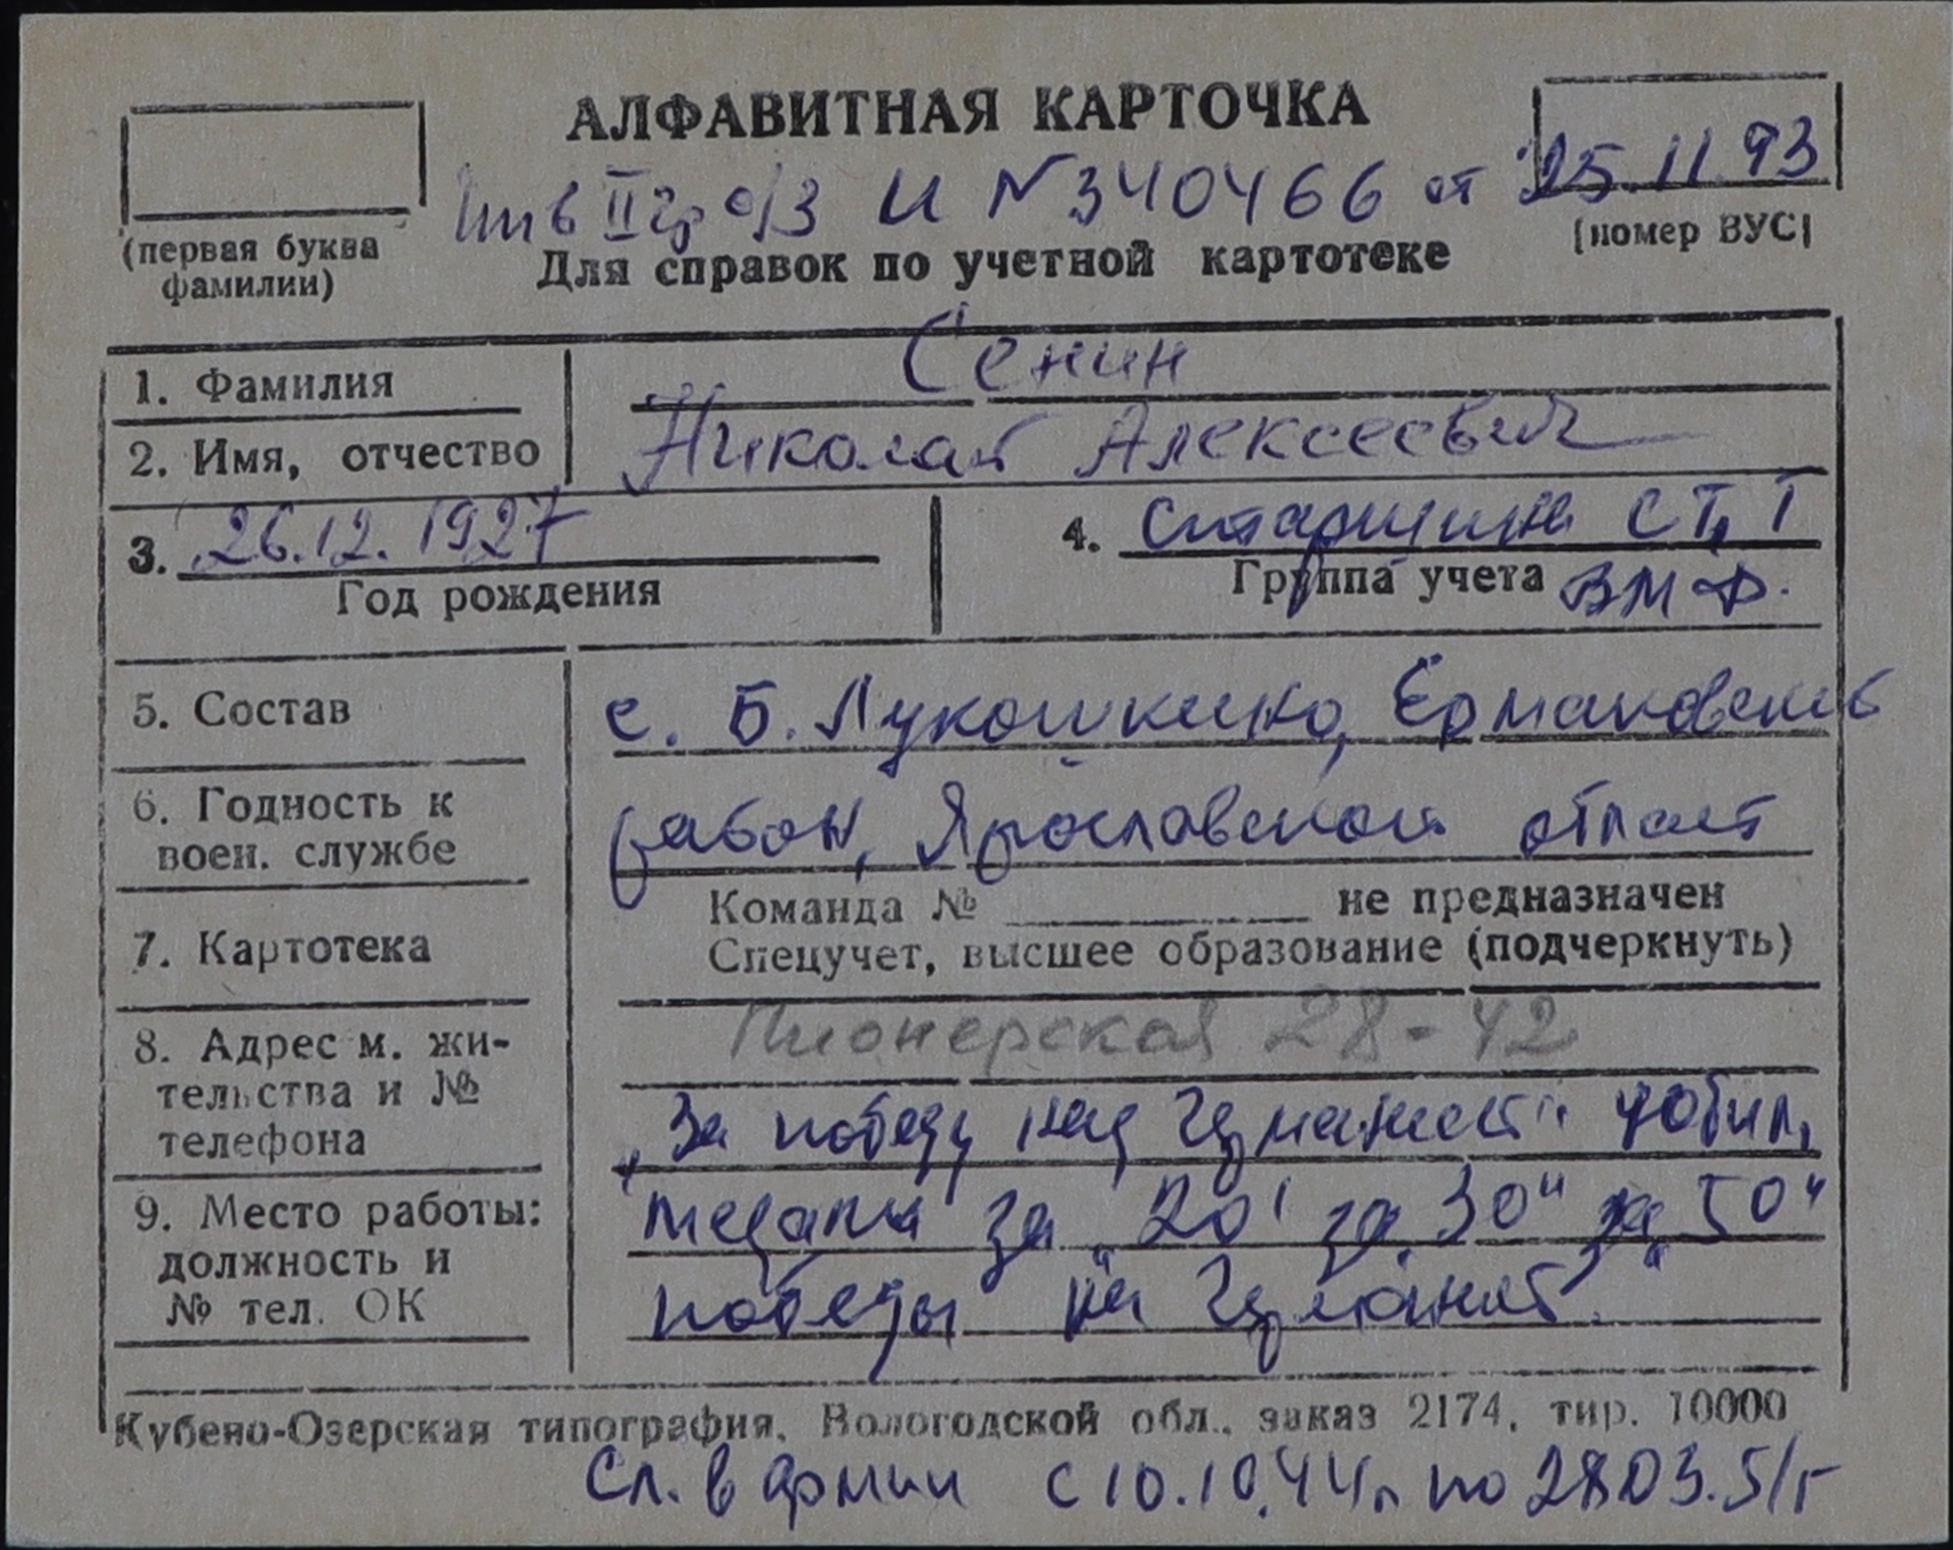 АЛФАВИТНАЯ КАРТОЧКА
Инв II гр о/з И №340466 от 25.11.93
(первая буква фамилии)
(номер ВУС)
Для справок по учетной картотеке
1. Фамилия Сенин
2. Имя, отчество Николай Алексеевич
3. 26.12.1927
Год рождения
4. старшина СТ, I
Группа учета ВМФ.
5. Состав с. Б. Лукошкино, Ермаковский
6. Годность к
воен. службе
район, Ярославской област
Команда № не предназначен
7. Картотека
Спецучет, высшее образование (подчеркнуть)
Пионерская 28-42
8. Адрес м. жи-
тельства и №
телефона
„За победу над Германией" юбил,
9. Место работы:
должность и
№ тел. ОК
медали за „20" за „30" за „50"
победы
Кубено-Озерская типография, Вологодской обл., заказ 2174, тир. 10000
Сл. в армии с 10.10.44г по 28.03.51г